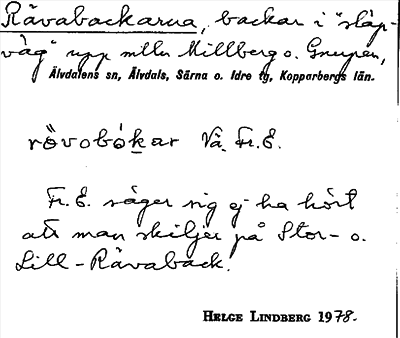 Rävabackarna, backar i "släp-
väg" upp mlln Millberg o. Gnupen,
Älvdalens sn, Älvdals, Särna o. Idre tg, Kopparbergs län.
rövobókar Vå. Fr. E.
Fr. E. säger sig ej ha hört
att man skiljer på Stor- o.
Lill-Rävaback.
HELGE LINDBERG 1978.